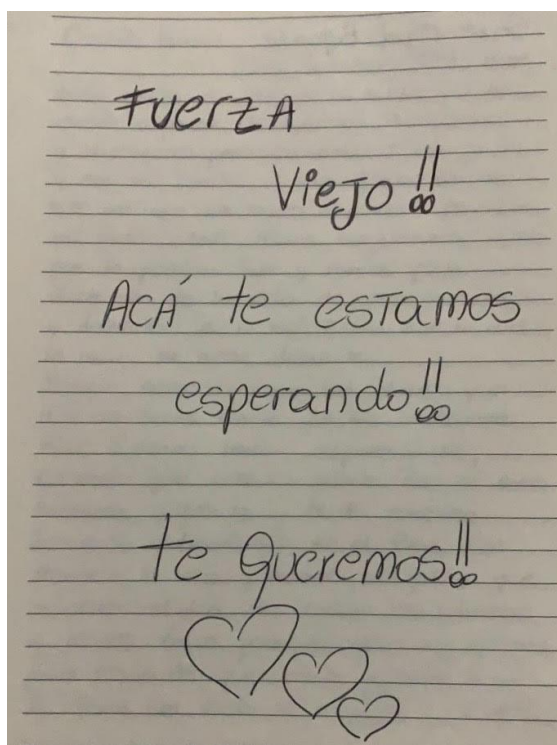 FuerzA
Viejo!!
ACÁ te estamos
esperando!!
te Queremos!!